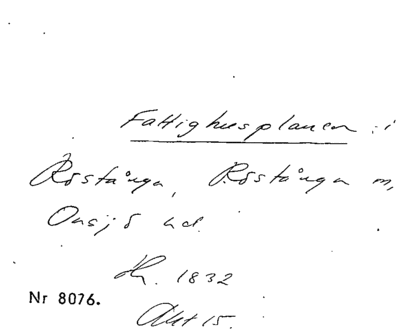 Fattighusplanen i
Röstånga, Röstånga sn,
Onsjö hd.
Hr. 1832
Nr 8076.
Akt 15.